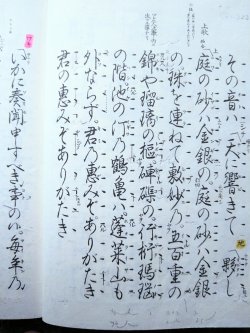 その音ハ 天に響きて 夥し
地
上歌
庭の砂ハ金銀の庭の砂ハ金銀
の珠を連ねて敷妙乃五百重の
錦や瑠璃の樞硨磲の行桁瑪瑙
の階池の汀乃鶴亀ハ蓬莱山も
外ならず君乃恵みぞありがたき
君の恵みぞありがたき
ワキ
いかに奏聞申すべき事の候毎年乃